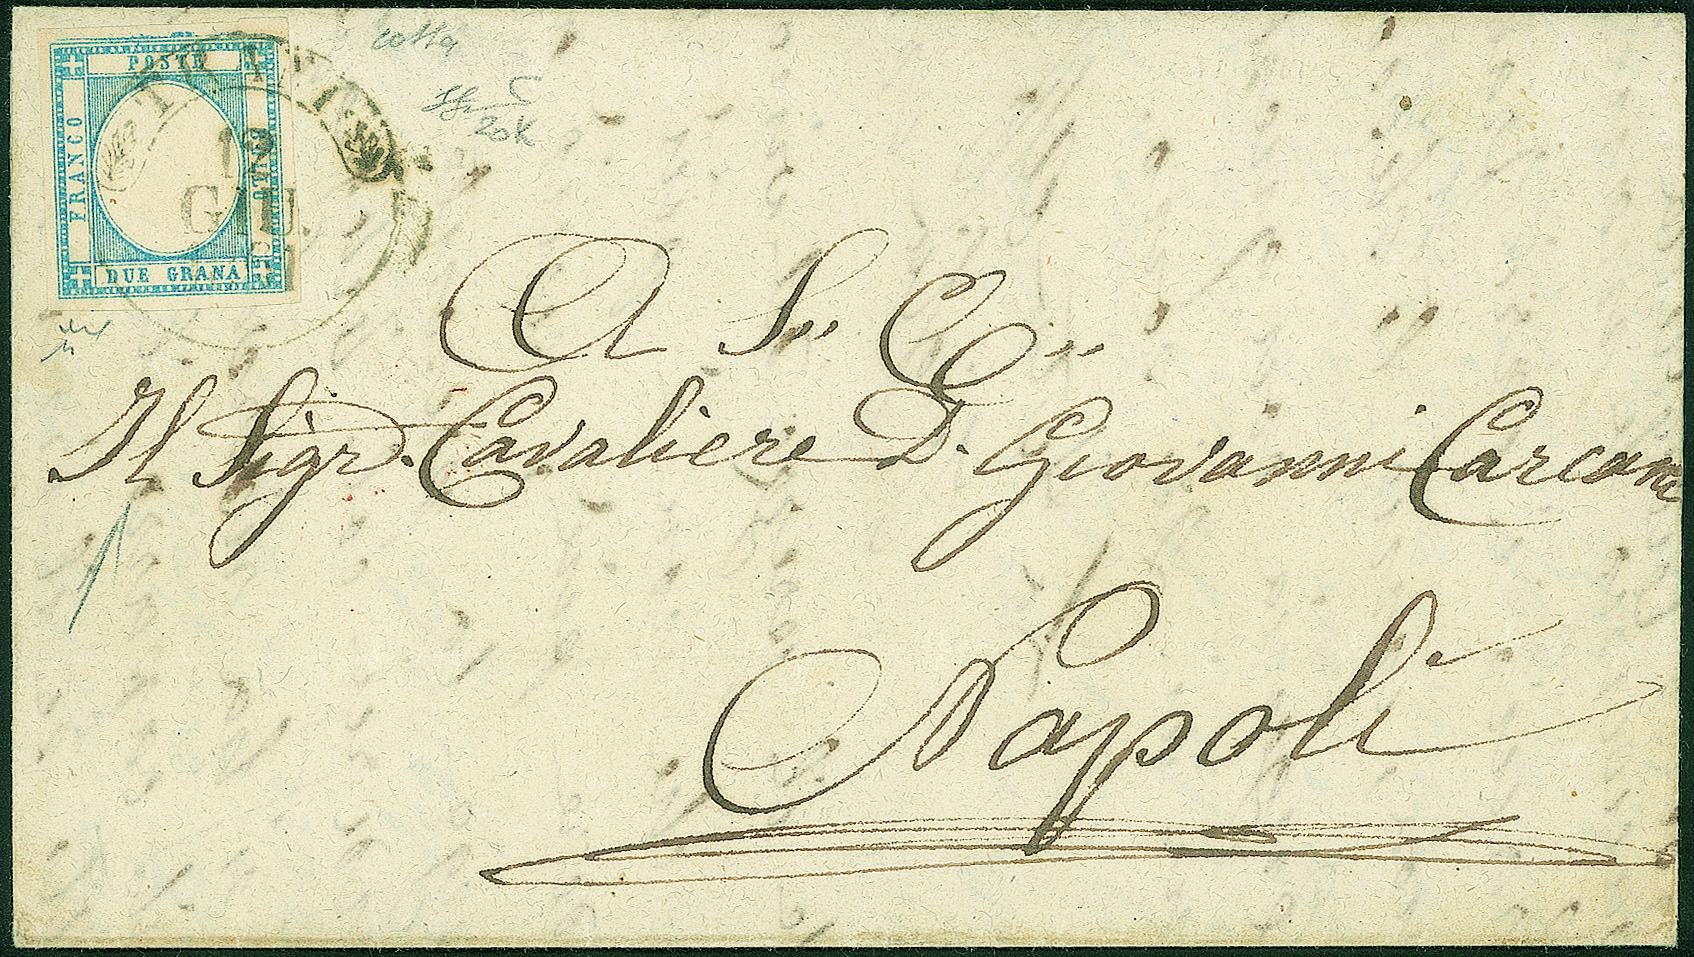 POSTE
FRANCO
BOLLO
DUE GRANA
12
GIU.
A S.
Il Sigr. Cavaliere D. Giovanni Carcani
Napoli